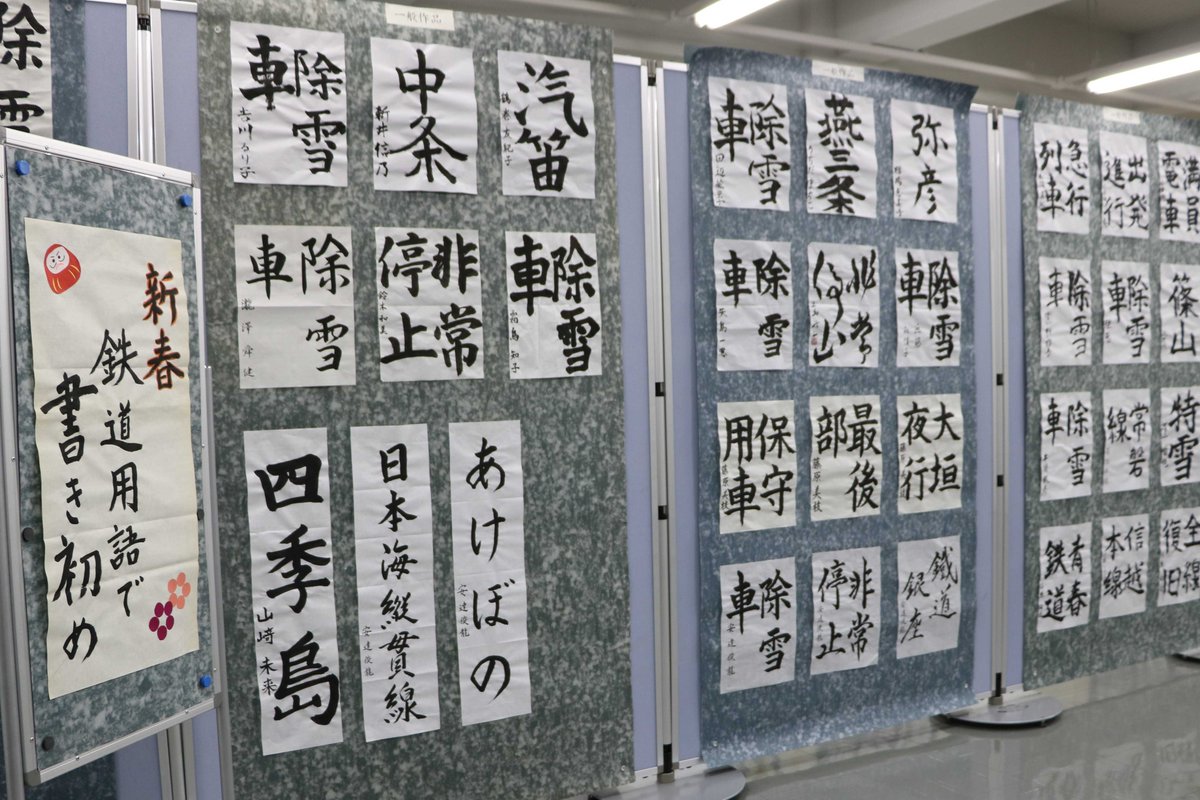 新春
鉄道用語で
書き初め
除
雪
一般作品
汽笛
中条
新井信乃
除雪
車
吉川るり子
除雪
車
霜鳥知子
非常
停止
鈴木和美
除雪
車
瀧澤舜健
あけぼの
安達俊龍
日本海縦貫線
安達俊龍
四季島
山﨑未来
一般作品
弥彦
燕三条
除雪
車
除雪
車
非常
停止
除雪
車
大垣
夜行
藤原美枝
最後
部
藤原美枝
保守
用車
藤原美枝
鐵道
銀座
非常
停止
安達俊龍
除雪
車
安達俊龍
満員
電車
出発
進行
急行
列車
篠山
除雪
車
除雪
車
特雪
常磐
線
除雪
車
全線
復旧
信越
本線
青春
鉄道